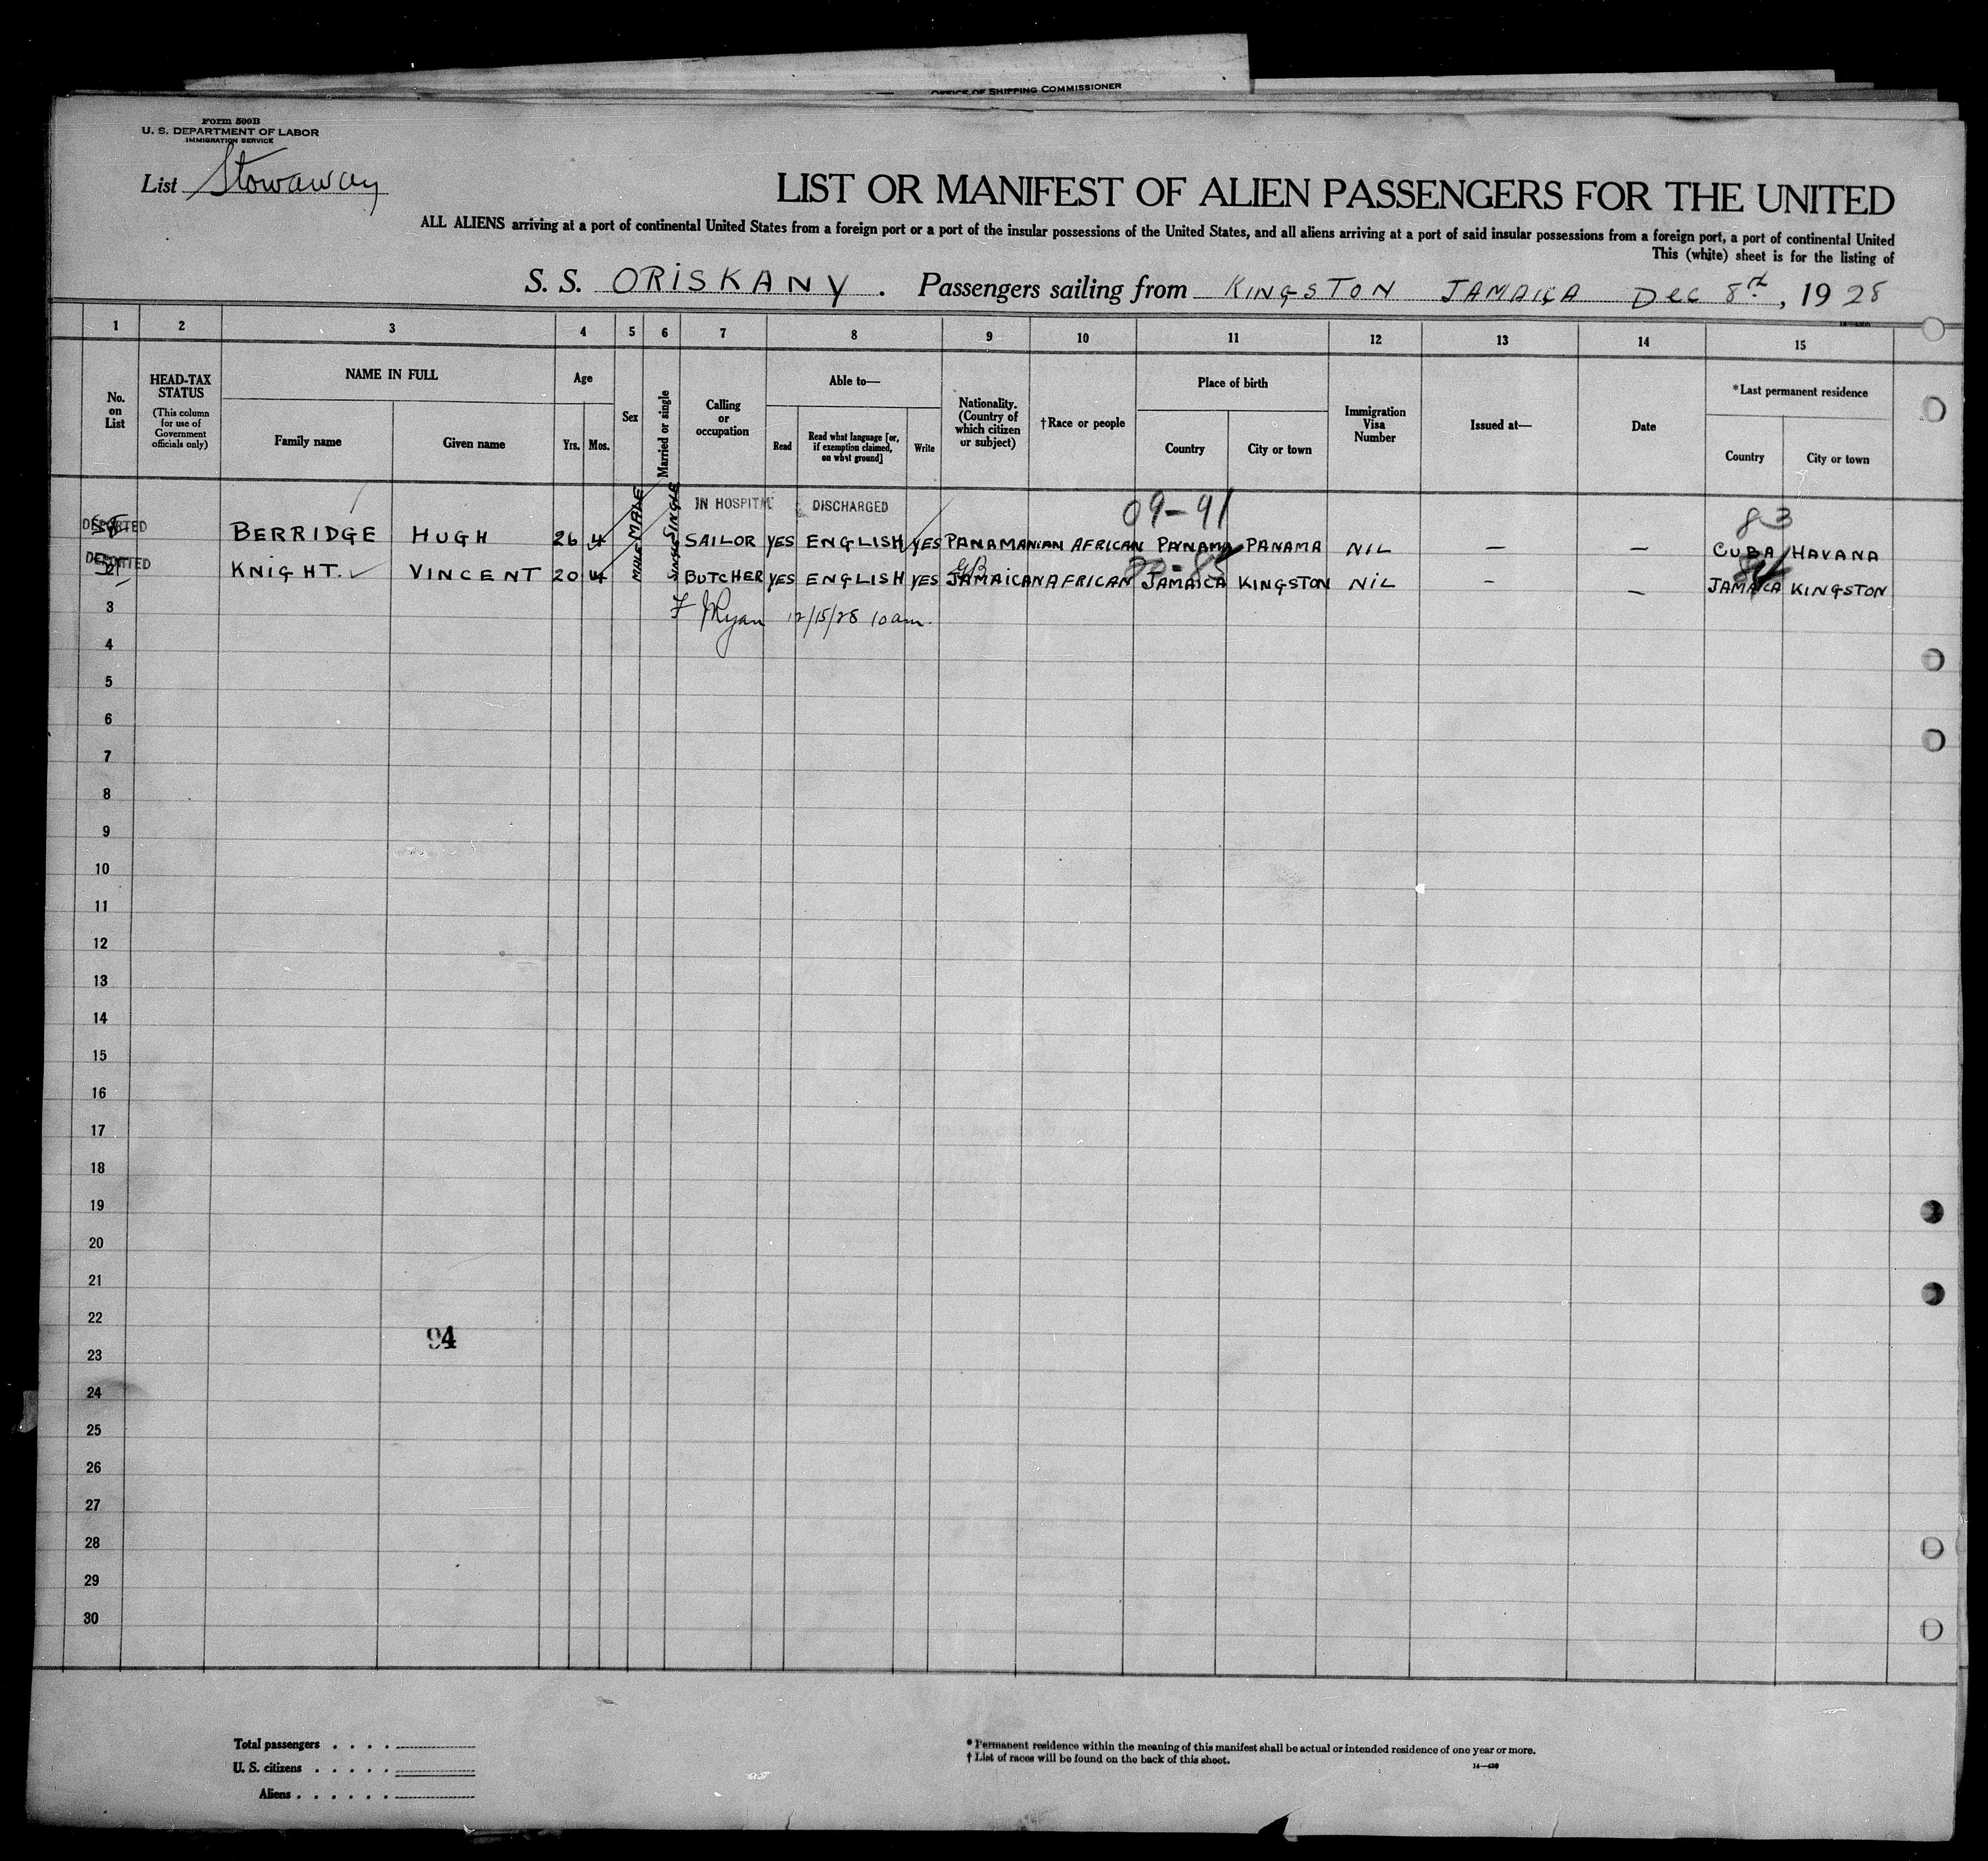 OFFICE OF SHIPPING COMMISSIONER
Form 500B
U. S. DEPARTMENT OF LABOR
IMMIGRATION SERVICE
List Stowaway
LIST OR MANIFEST OF ALIEN PASSENGERS FOR THE UNITED
ALL ALIENS arriving at a port of continental United States from a foreign port or a port of the insular possessions of the United States, and all aliens arriving at a port of said insular possessions from a foreign port, a port of continental United
This (white) sheet is for the listing of
S. S. ORISKANY . Passengers sailing from KINGSTON JAMAICA Dec 8th, 1928
1 2 3 4 5 6 7 8 9 10 11 12 13 14 15
No. on List
HEAD-TAX STATUS
(This column for use of Government officials only)
NAME IN FULL
Family name
Given name
Age
Yrs. Mos.
Sex
Married or single
Calling or occupation
Able to—
Read
Read what language [or, if exemption claimed, on what ground]
Write
Nationality. (Country of which citizen or subject)
†Race or people
Place of birth
Country
City or town
Immigration Visa Number
Issued at—
Date
*Last permanent residence
Country
City or town
IN HOSPITAL DISCHARGED 09-91 83
DEPORTED BERRIDGE HUGH 26 4 MALE SINGLE SAILOR YES ENGLISH YES PANAMANIAN AFRICAN PANAMA PANAMA NIL — — CUBA HAVANA
DEPORTED KNIGHT. VINCENT 20 4 MALE SINGLE BUTCHER YES ENGLISH YES JAMAICAN AFRICAN JAMAICA KINGSTON NIL — — JAMAICA KINGSTON
3 F J Ryan 12/15/28 10 am.
4
5
6
7
8
9
10
11
12
13
14
15
16
17
18
19
20
21
22
94
23
24
25
26
27
28
29
30
Total passengers . . . .
U. S. citizens . . . . .
Aliens . . . . . .
* Permanent residence within the meaning of this manifest shall be actual or intended residence of one year or more.
† List of races will be found on the back of this sheet.
14—430